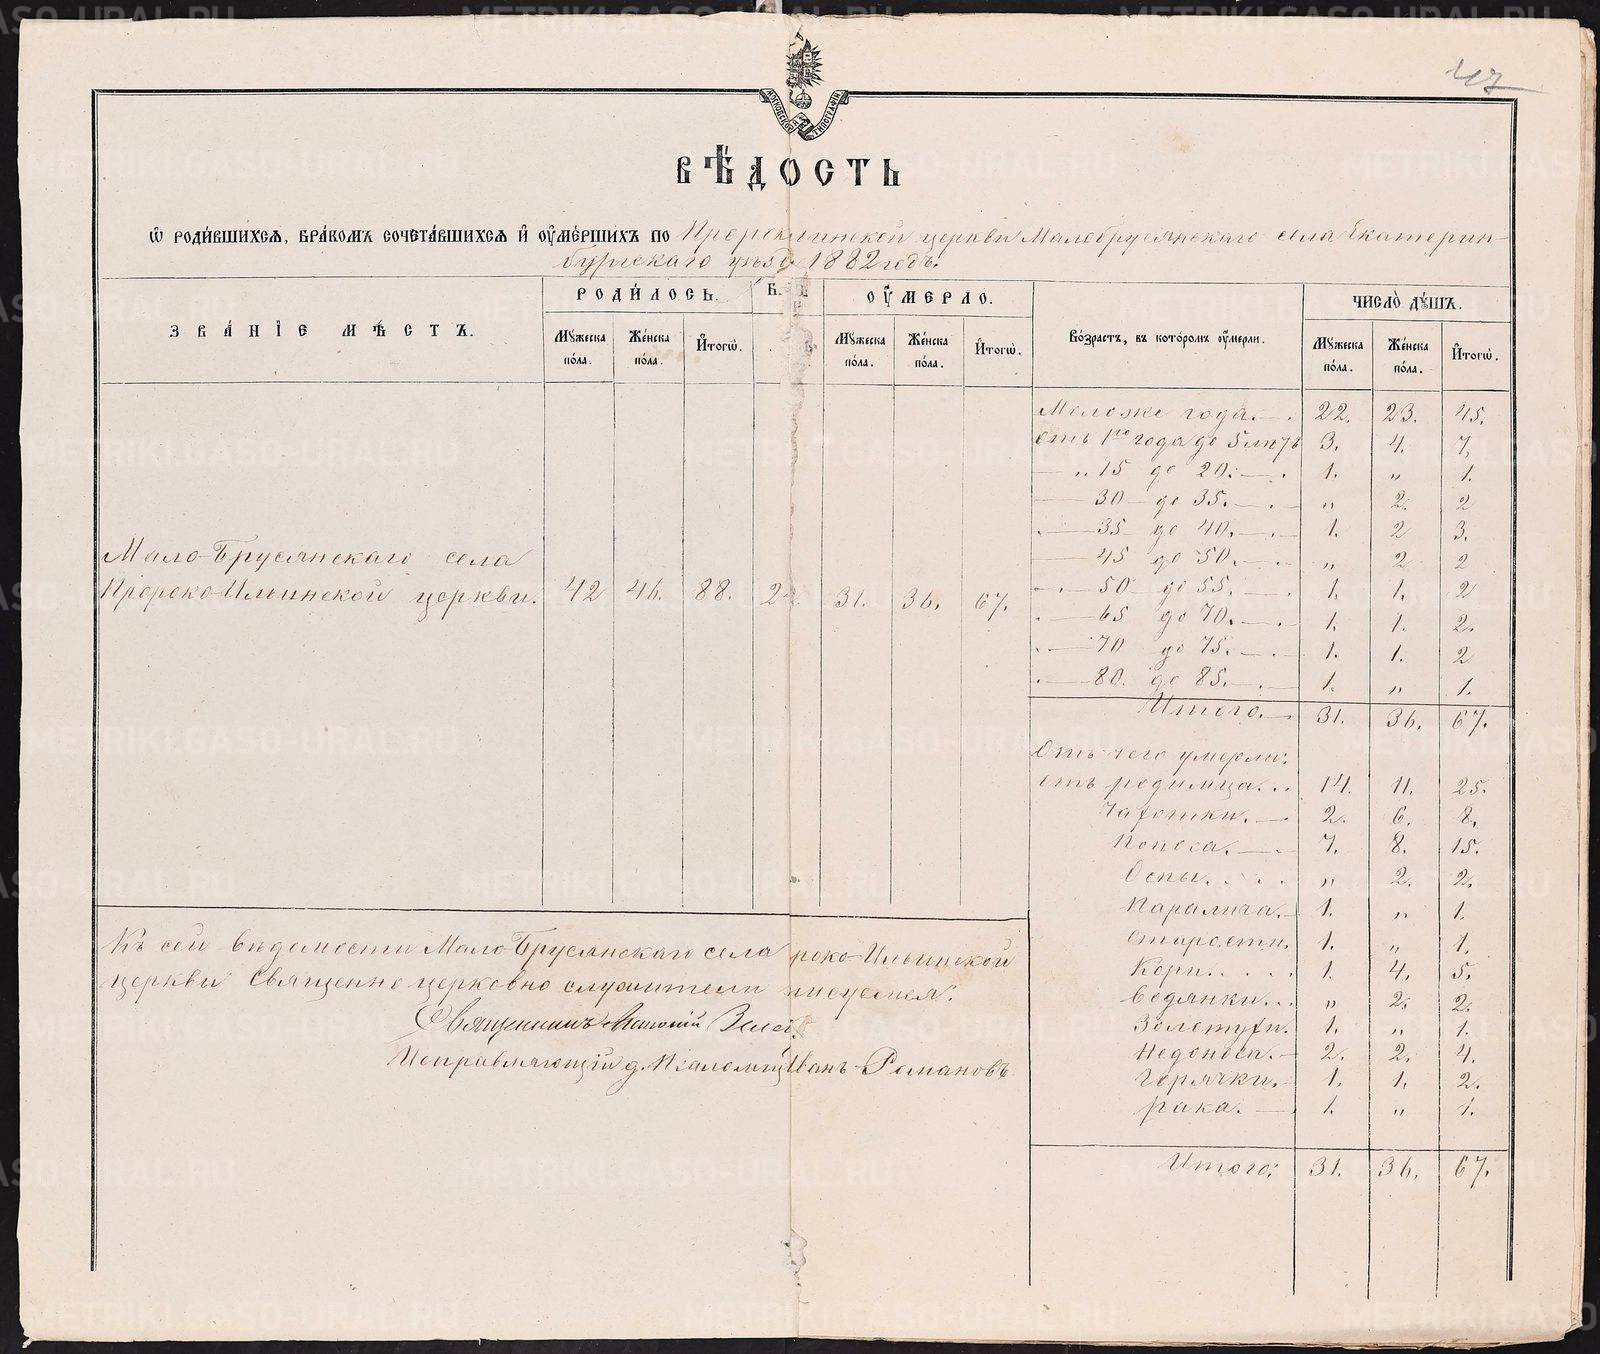 47
МОСКОВСКОЙ СИНОД. ТИПОГРАФІИ
ВѢДОСТЬ
Ѡ РОДИ́ВШИХСѦ, БРА́КОМЪ СОЧЕТА́ВШИХСѦ И҆ ОУ҆МЕ́РШИХЪ ПО Пророкоильинской церкви Малобрусянскаго села Екатерин-
бургскаго уѣз 1882 годъ.
ЗВА́НІЕ МѢ́СТЪ.
РОДИ́ЛОСЬ.
Мꙋ́жеска по́ла.
Же́нска по́ла.
И҆того̀.
Б.
ОУ҆́МЕРЛО.
Мꙋ́жеска по́ла.
Же́нска по́ла.
И҆того̀.
Во́зрастъ, въ кото́ромъ оу҆́мерли.
ЧИСЛО̀ ДꙊ́ШЪ.
Мꙋ́жеска по́ла.
Же́нска по́ла.
И҆того̀.
Мало-Брусянскаго села
Пророко-Ильинской церкви. 42 46. 88. 2 31. 36. 67.
Моложе года. 22. 23. 45.
Отъ 1го года до 5 лѣтъ 3. 4. 7.
„ 15 до 20. 1. „ 1.
30 до 35. „ 2. 2
35 до 40. 1. 2 3.
45 до 50. „ 2 2
50 до 55. 1. 1. 2
65 до 70. 1. 1. 2.
70 до 75. 1. 1. 2
80. до 85. 1. „ 1.
Итого. 31. 36. 67.
Отъ чего умерли:
отъ родимца... 14. 11. 25.
Чахотки. 2. 6. 8.
Поноса. 7. 8. 15.
Оспы.... „ 2. 2.
Паралича. 1. „ 1.
Старости. 1. „ 1.
Кори.... 1. 4. 5.
Водянки... „ 2. 2.
Золотухи. 1. „ 1.
Недоноса. 2. 2. 4.
Горячки. 1. 1. 2.
рака. 1. „ 1.
Итого: 31. 36. 67.
Къ сей вѣдомости Мало-Брусянскаго села роко-Ильинской
церкви Священно церковно служители писуемся:
Священникъ
Исправляющій д. Псаломщ Иванъ Романовъ
METRIKI.GASO-URAL.RU